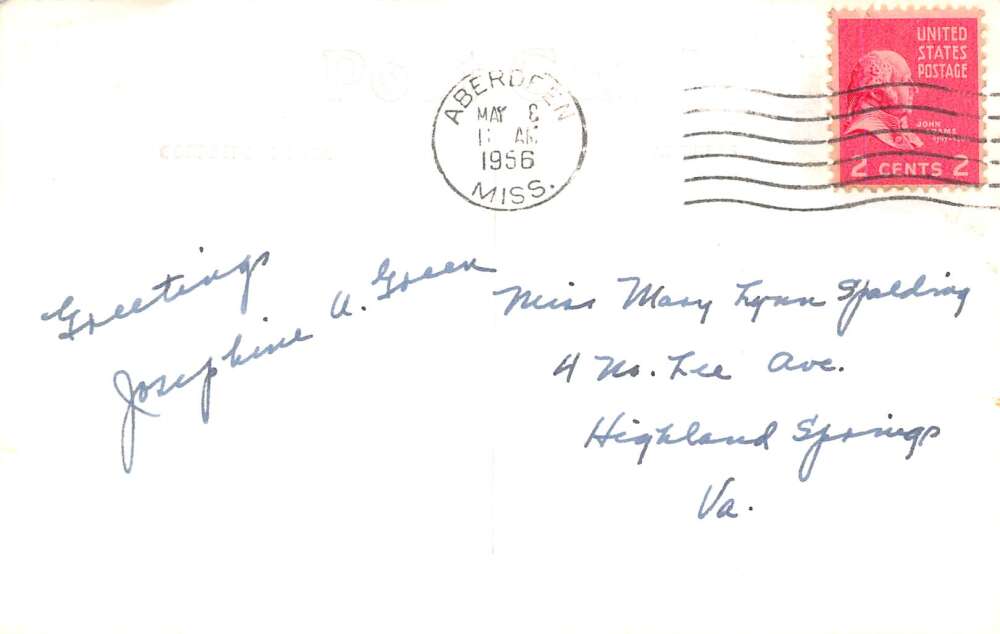 ABERDEEN
MAY 8
11 AM
1956
MISS.
UNITED
STATES
POSTAGE
JOHN
ADAMS
2 CENTS 2
Greetings
Josephine A. Green
Miss Mary Lynn Spalding
4 No. Lee Ave.
Highland Springs
Va.